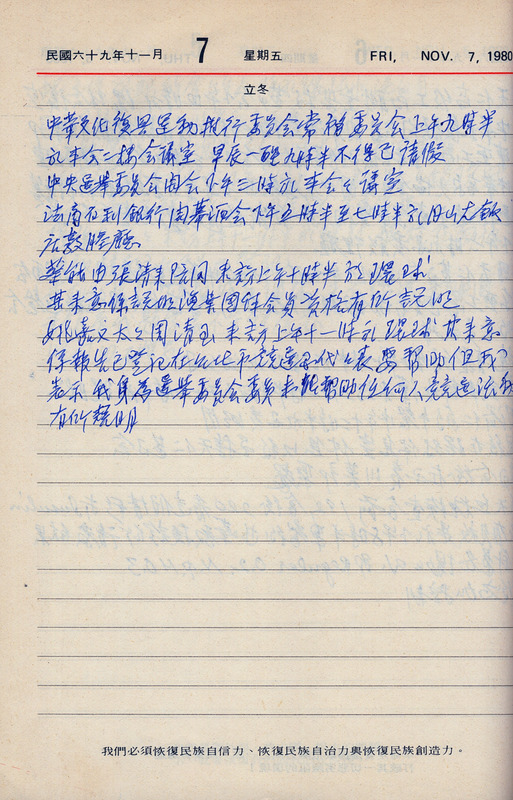 民國六十九年十一月 7 星期五 FRI, NOV. 7, 1980
立冬
中華文化復興運動推行委員會常務委員會上午九時半
於本會二樓會議室 早辰一醒九時半不得已請假
中央選舉委員會開會下午三時於本會會議室
法商百利銀行開幕酒會下午五時半至七時半於
廳
由張清來陪同來訪上午十時半於環球
其來意係說明 集團 會員資格有所說明
姚嘉文太太周清玉來訪上午十一時於環球 其來意
係報告已登記在台北市競選國代代表要幫助但我
表示我身為選舉委員會委員未能幫助任何人競選法
有所規明
我們必須恢復民族自信力、恢復民族自治力與恢復民族創造力。